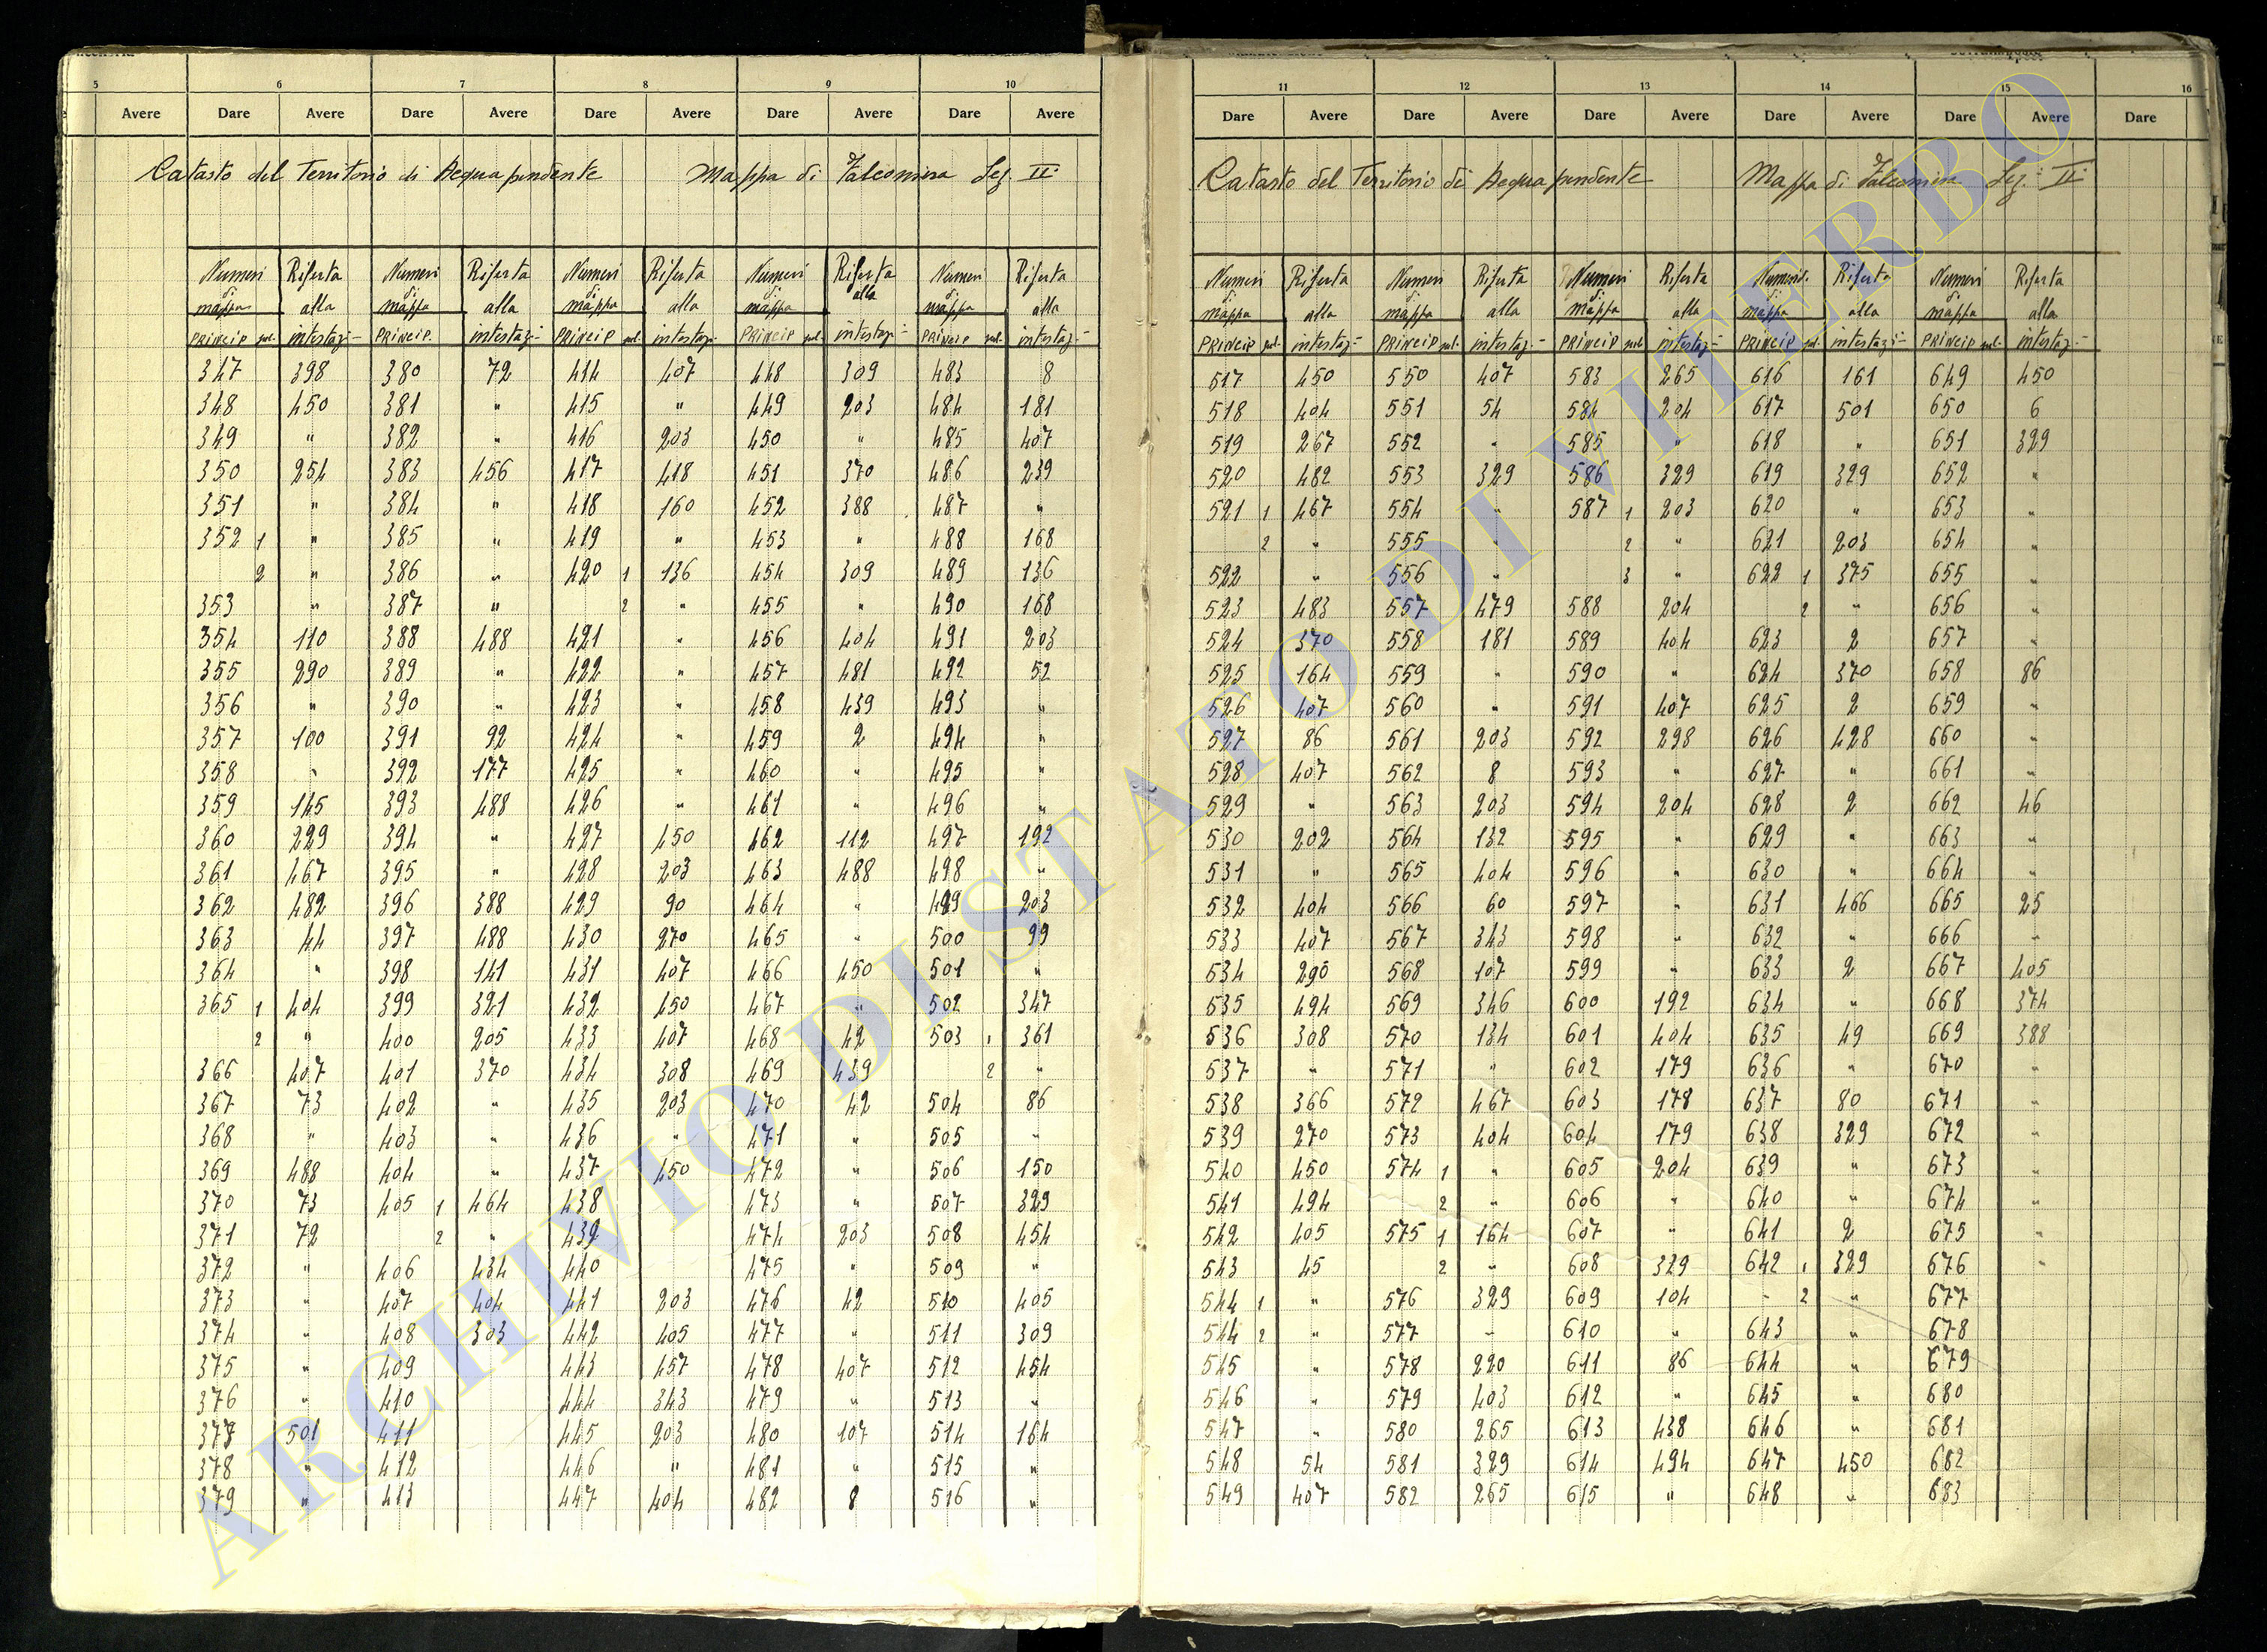 5 6 7 8 9 10
Avere Dare Avere Dare Avere Dare Avere Dare Avere Dare Avere
Catasto del Territorio di Acquapendente Mappa di Falconiera Sez. II:
Numeri Riferta Numeri Riferta Numeri Riferta Numeri Riferta Numeri Riferta
di di di di di
mappa alla mappa alla mappa alla mappa alla mappa alla
PRINCIP sul. intestaz:- PRINCIP. intestaz:- PRINCIP sul. intestaz:- PRINCIP sul. intestaz:- PRINCIP sul. intestaz:-
347 398 380 72 414 407 448 309 483 8
348 450 381 " 415 " 449 203 484 181
349 " 382 " 416 203 450 " 485 407
350 254 383 456 417 418 451 370 486 239
351 " 384 " 418 160 452 388 487 "
352 1 " 385 " 419 " 453 " 488 168
2 " 386 " 420 1 136 454 309 489 136
353 " 387 " 2 " 455 " 490 168
354 110 388 488 421 " 456 404 491 203
355 290 389 " 422 " 457 481 492 52
356 " 390 " 423 " 458 439 493 "
357 100 391 92 424 " 459 2 494 "
358 " 392 177 425 " 460 " 495 "
359 145 393 488 426 " 461 " 496 "
360 229 394 " 427 450 462 112 497 192
361 467 395 " 428 203 463 488 498 "
362 482 396 388 429 90 464 " 499 203
363 44 397 488 430 270 465 " 500 99
364 " 398 141 431 407 466 450 501 "
365 1 404 399 321 432 450 467 " 502 347
2 " 400 205 433 407 468 42 503 1 361
366 407 401 370 434 308 469 439 2 "
367 73 402 " 435 203 470 42 504 86
368 " 403 " 436 " 471 " 505 "
369 488 404 " 437 450 472 " 506 150
370 73 405 1 464 438 473 " 507 329
371 72 2 " 439 474 203 508 454
372 " 406 434 440 475 " 509 "
373 " 407 404 441 203 476 42 510 405
374 " 408 303 442 405 477 " 511 309
375 " 409 443 457 478 407 512 454
376 " 410 444 343 479 " 513 "
377 501 411 445 203 480 107 514 164
378 " 412 446 " 481 " 515 "
379 " 413 447 404 482 8 516 "
11 12 13 14 15 16
Dare Avere Dare Avere Dare Avere Dare Avere Dare Avere Dare
Catasto del Territorio di Acquapendente Mappa di Falconiera Sez: II:
Numeri Riferta Numeri Riferta Numeri Riferta Numeri Riferta Numeri Riferta
di di di di di
mappa alla mappa alla mappa alla mappa alla mappa alla
PRINCIP sul. intestaz:- PRINCIP sul. intestaz:- PRINCIP sul. intestaz:- PRINCIP sul. intestaz:- PRINCIP sul. intestaz:-
517 450 550 407 583 265 616 161 649 450
518 404 551 54 584 204 617 501 650 6
519 267 552 " 585 " 618 " 651 329
520 482 553 329 586 329 619 329 652 "
521 1 467 554 " 587 1 203 620 " 653 "
2 " 555 " 2 " 621 203 654 "
522 " 556 " 3 " 622 1 375 655 "
523 483 557 479 588 204 2 " 656 "
524 370 558 181 589 404 623 2 657 "
525 164 559 " 590 " 624 370 658 86
526 407 560 " 591 407 625 2 659 "
527 86 561 203 592 298 626 428 660 "
528 407 562 8 593 " 627 " 661 "
529 " 563 203 594 204 628 2 662 46
530 202 564 132 595 " 629 " 663 "
531 " 565 404 596 " 630 " 664 "
532 404 566 60 597 " 631 466 665 25
533 407 567 343 598 " 632 " 666 "
534 290 568 107 599 " 633 2 667 405
535 494 569 346 600 192 634 " 668 374
536 308 570 134 601 404 635 49 669 388
537 " 571 " 602 179 636 " 670 "
538 366 572 467 603 178 637 80 671 "
539 270 573 404 604 179 638 329 672 "
540 450 574 1 " 605 204 639 " 673 "
541 494 2 " 606 " 640 " 674 "
542 405 575 1 164 607 " 641 2 675 "
543 45 2 " 608 329 642 1 329 676 "
544 1 " 576 329 609 104 " 2 " 677
544 2 " 577 " 610 " 643 " 678
545 " 578 220 611 86 644 " 679
546 " 579 403 612 " 645 " 680
547 " 580 265 613 438 646 " 681
548 54 581 329 614 494 647 450 682
549 407 582 265 615 " 648 " 683
ARCHIVIO DI STATO DI VITERBO